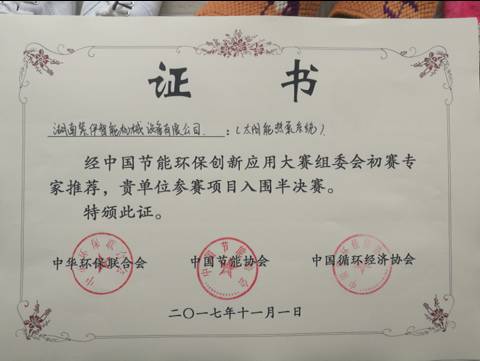 证书
湖南 智能机械设备有限公司：（太阳能热泵系统）
经中国节能环保创新应用大赛组委会初赛专
家推荐，贵单位参赛项目入围半决赛。
特颁此证。
中华环保联合会 中国节能协会 中国循环经济协会
二〇一七年十一月一日